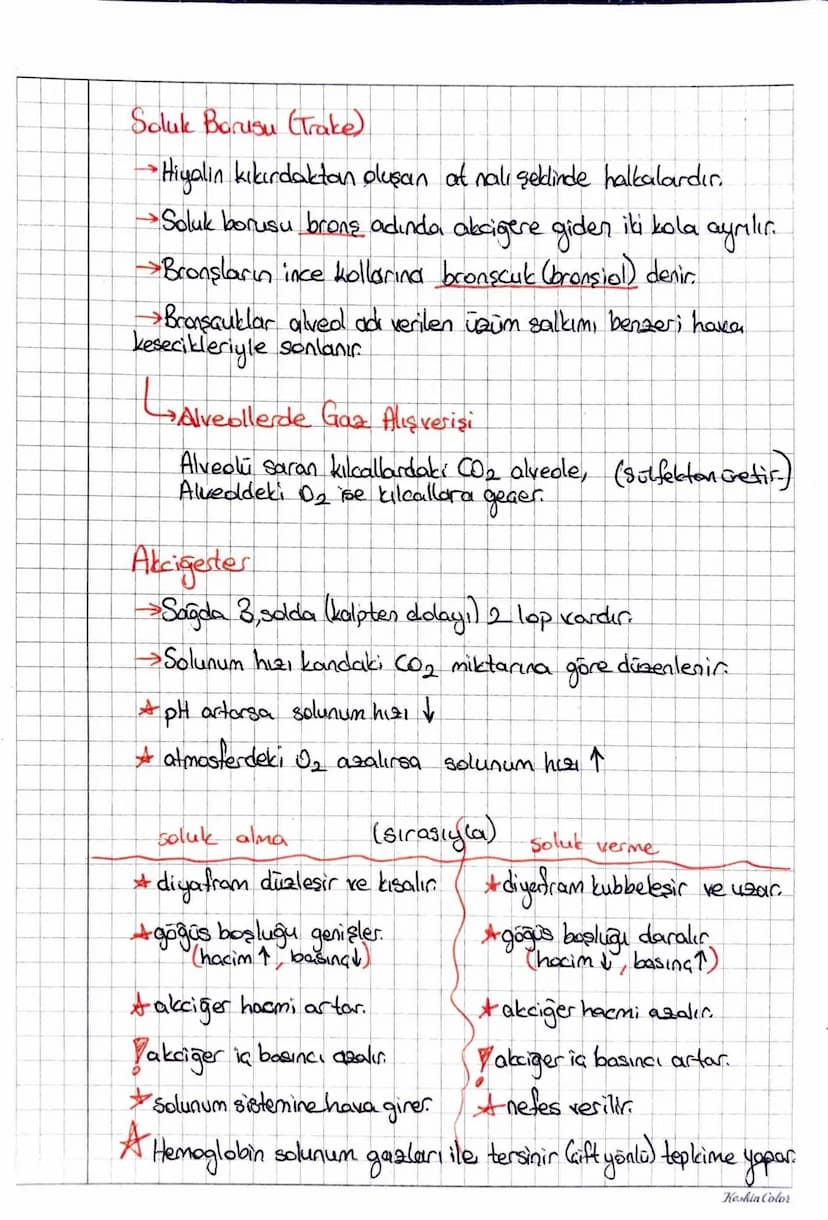 Soluk Borusu (Trake)
→ Hiyalin kıkırdaktan oluşan at nalı şeklinde halkalardır.
→ Soluk borusu bronş adında akciğere giden iki kola ayrılır.
→ Bronşların ince kollarına bronşcuk (bronşiol) denir.
→ Bronşcuklar alveol adı verilen üzüm salkımı benzeri hava
kesecikleriyle sonlanır.
→ Alveollerde Gaz Alışverişi
Alveolü saran kılcallardaki CO₂ alveole, (sülfektan üretir.)
Alveoldeki O₂ ise kılcallara geçer.
Akciğerler
→ Sağda 3, solda (kalpten dolayı) 2 lop vardır.
→ Solunum hızı kandaki CO₂ miktarına göre düzenlenir.
★ pH artarsa solunum hızı ↓
★ atmosferdeki O₂ azalırsa solunum hızı ↑
soluk alma (sırasıyla) soluk verme
★ diyafram düzleşir ve kısalır. ★ diyafram kubbeleşir ve uzar.
★ göğüs boşluğu genişler. ★ göğüs boşluğu daralır.
(hacim ↑, basınç ↓) (hacim ↓, basınç ↑)
★ akciğer hacmi artar. ★ akciğer hacmi azalır.
! akciğer iç basıncı azalır. ! akciğer iç basıncı artar.
★ solunum sistemine hava girer. ★ nefes verilir.
★ Hemoglobin solunum gazları ile tersinir (çift yönlü) tepkime yapar.
Keskin Color